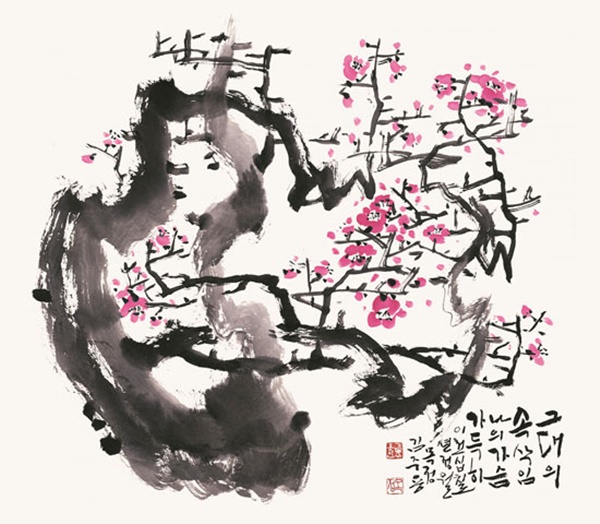 그대의
속삭임
나의 가슴
가득히
이천십칠
년 정월
목정